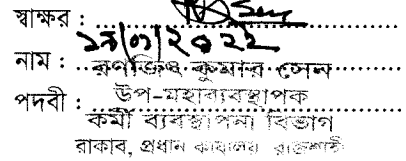 স্বাক্ষর :
নাম :
রণজিৎ কুমার সেন
পদবী :
উপ-মহাব্যবস্থাপক
কর্মী ব্যবস্থাপনা বিভাগ
রাকাব, প্রধান কার্যালয় রাজশাহী